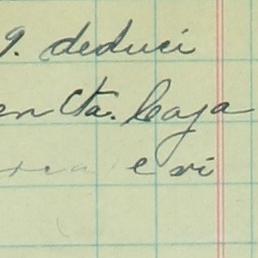 9. deduci
en Cta. Caja
e vi